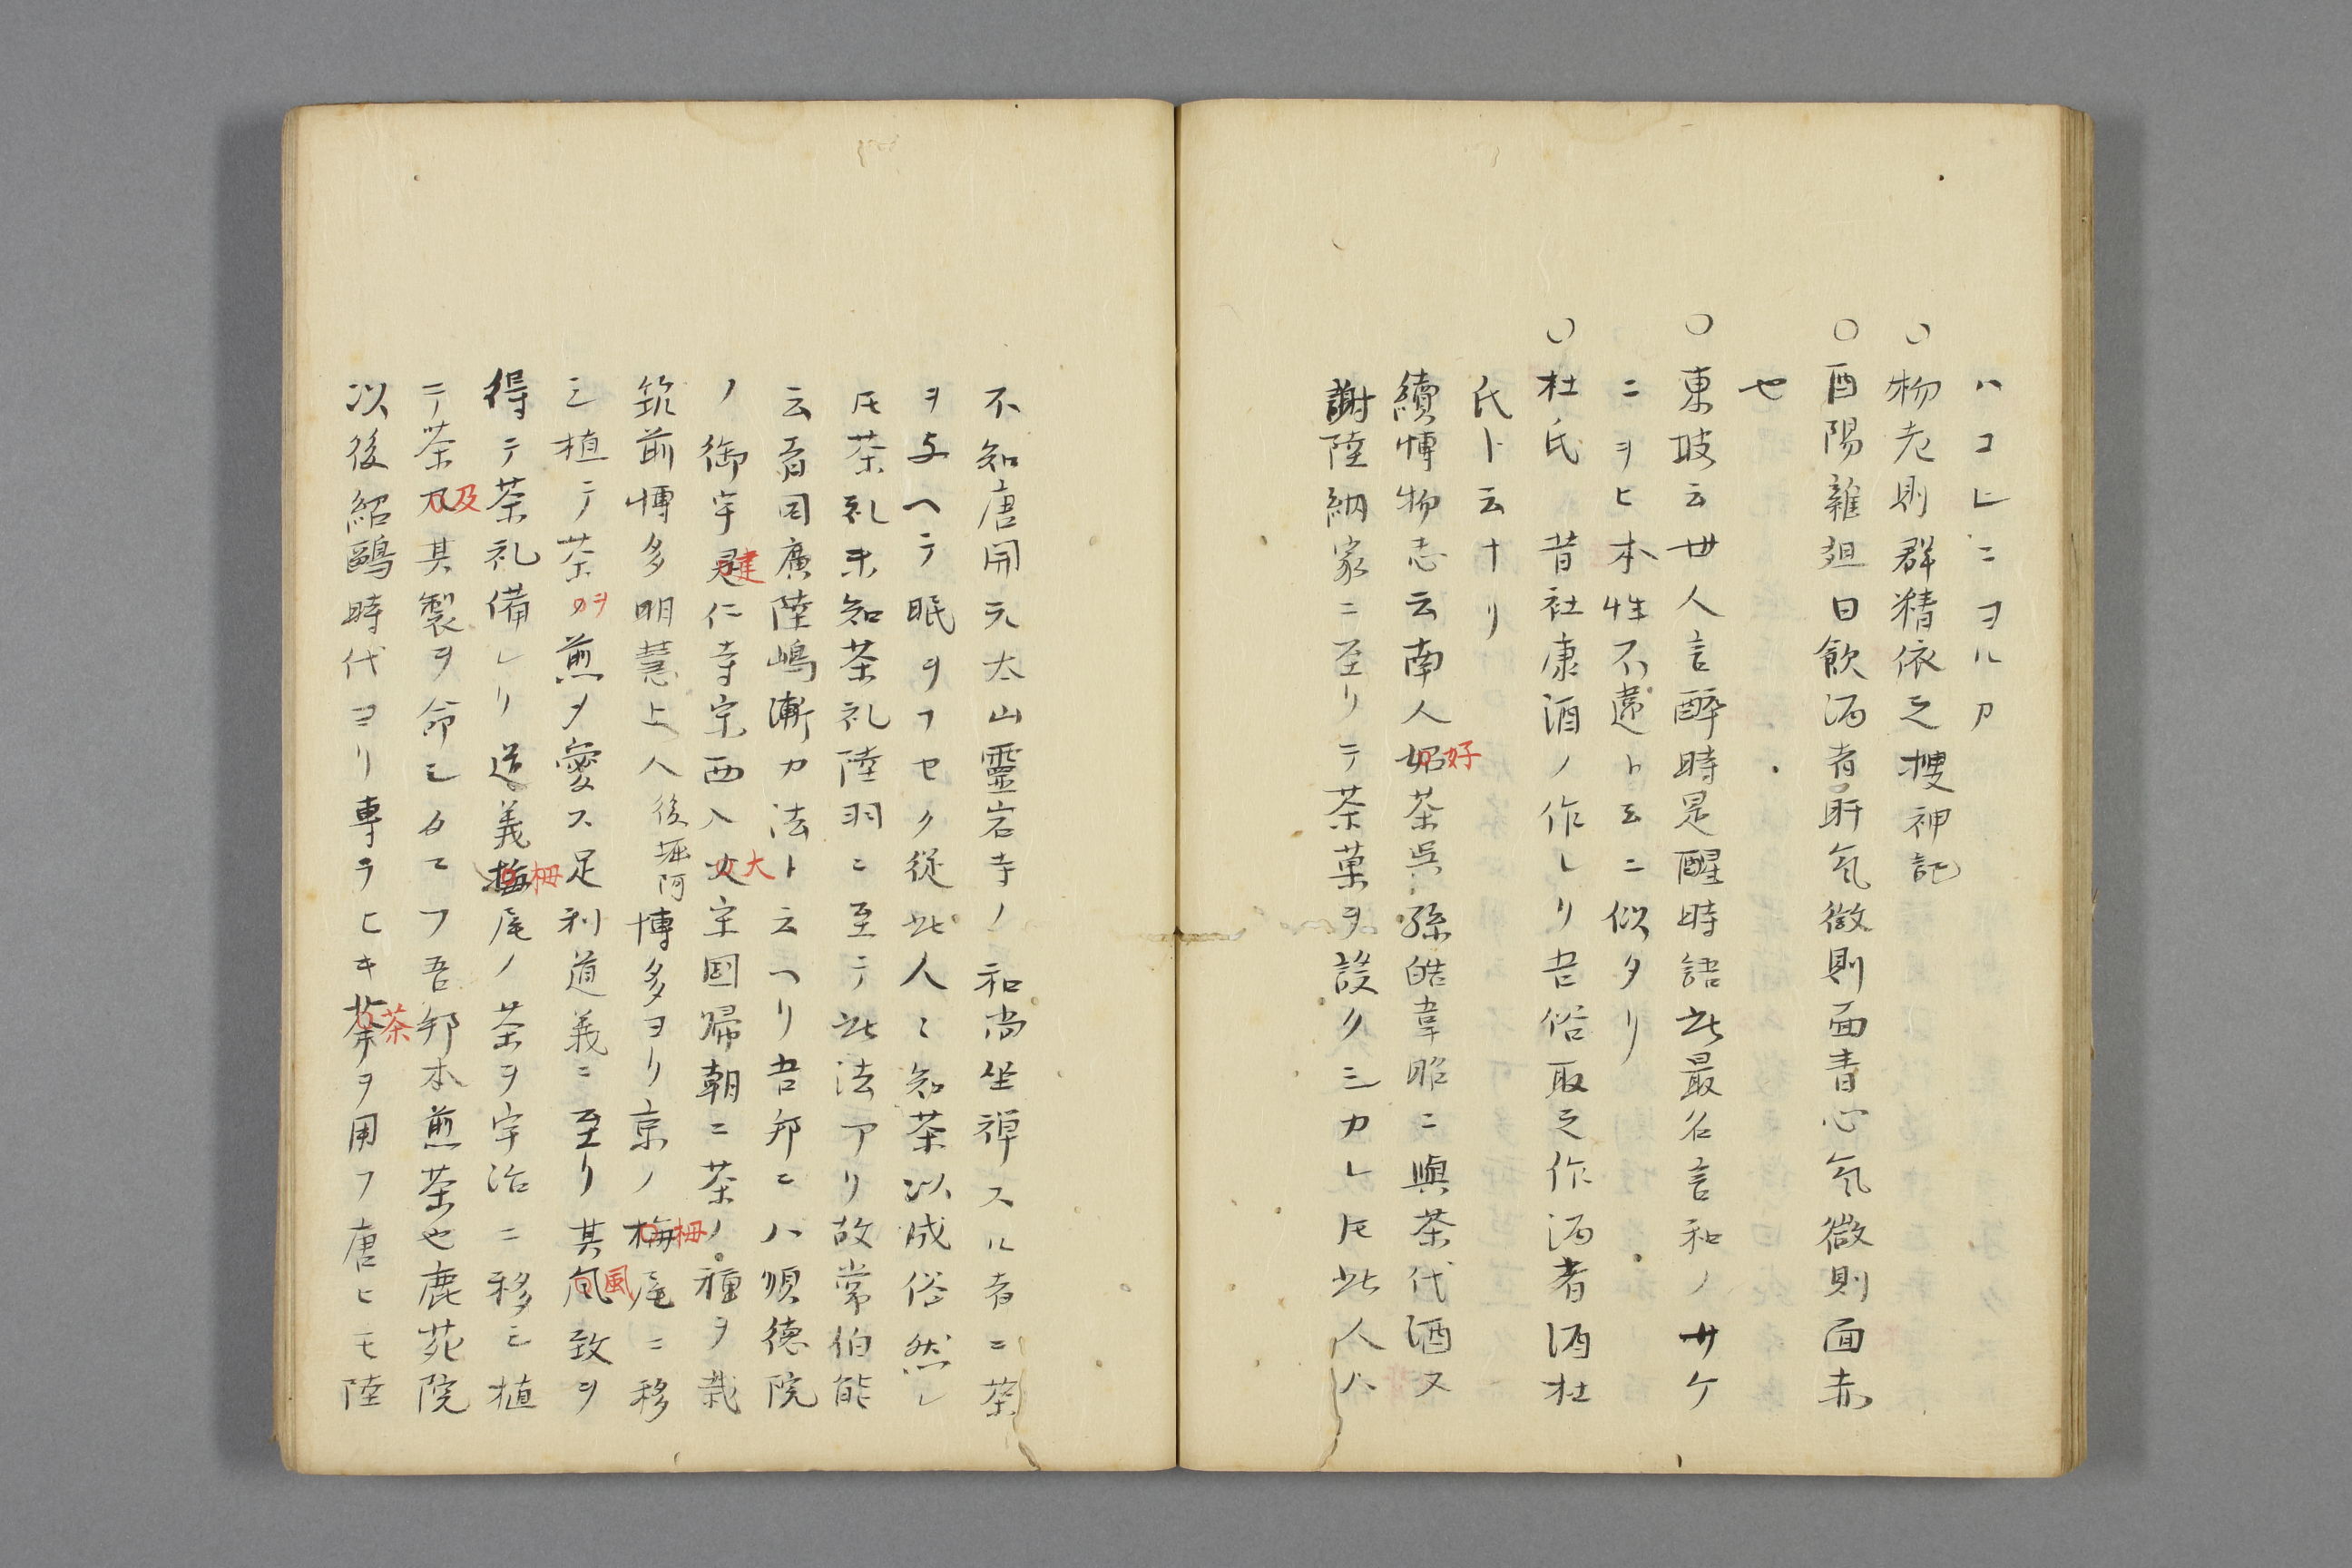 ハコレニヨルカ
○物老則群精依之搜神記
○酉陽雜俎曰飲酒者肝氣微則面青心氣微則面赤
也
○東坡云世人言醉時是醒時語此最名言和ノサケ
ニヲヒ本性不違ト云ニ似タリ
○杜氏昔社康酒ノ作レリ吾俗取之作酒者酒杜
氏ト云ナリ
續博物志云南人好茶吳孫皓韋昭ニ與茶代酒又
謝陸納家ニ至リテ茶菓ヲ設クミカレ𪜈此人ハ
不知唐開元太山靈岩寺ノ和尚坐禅スル者ニ茶
ヲ与ヘテ眠ヲフセク従此人々知茶以成俗然レ
𪜈茶礼未知茶礼陸羽ニ至テ此法アリ故常伯能
云 因廣陸嶋漸カ法ト云ヘリ吾邦ニハ順德院
ノ御宇建仁寺宗西入大宋国歸朝ニ茶ノ種ヲ栽
筑前博多明慧上人後堀阿博多ヨリ京ノ栂尾ニ移
シ植テ茶ヲ煎メ愛ス足利道義ニ至リ其風致ヲ
得テ茶礼備レリ道義栂尾ノ茶ヲ宇治ニ移シ植
テ茶及其製ヲ命シタマフ吾邦本煎茶也鹿苑院
以後紹鷗時代ヨリ専ラヒキ茶ヲ用フ唐ヒモ陸